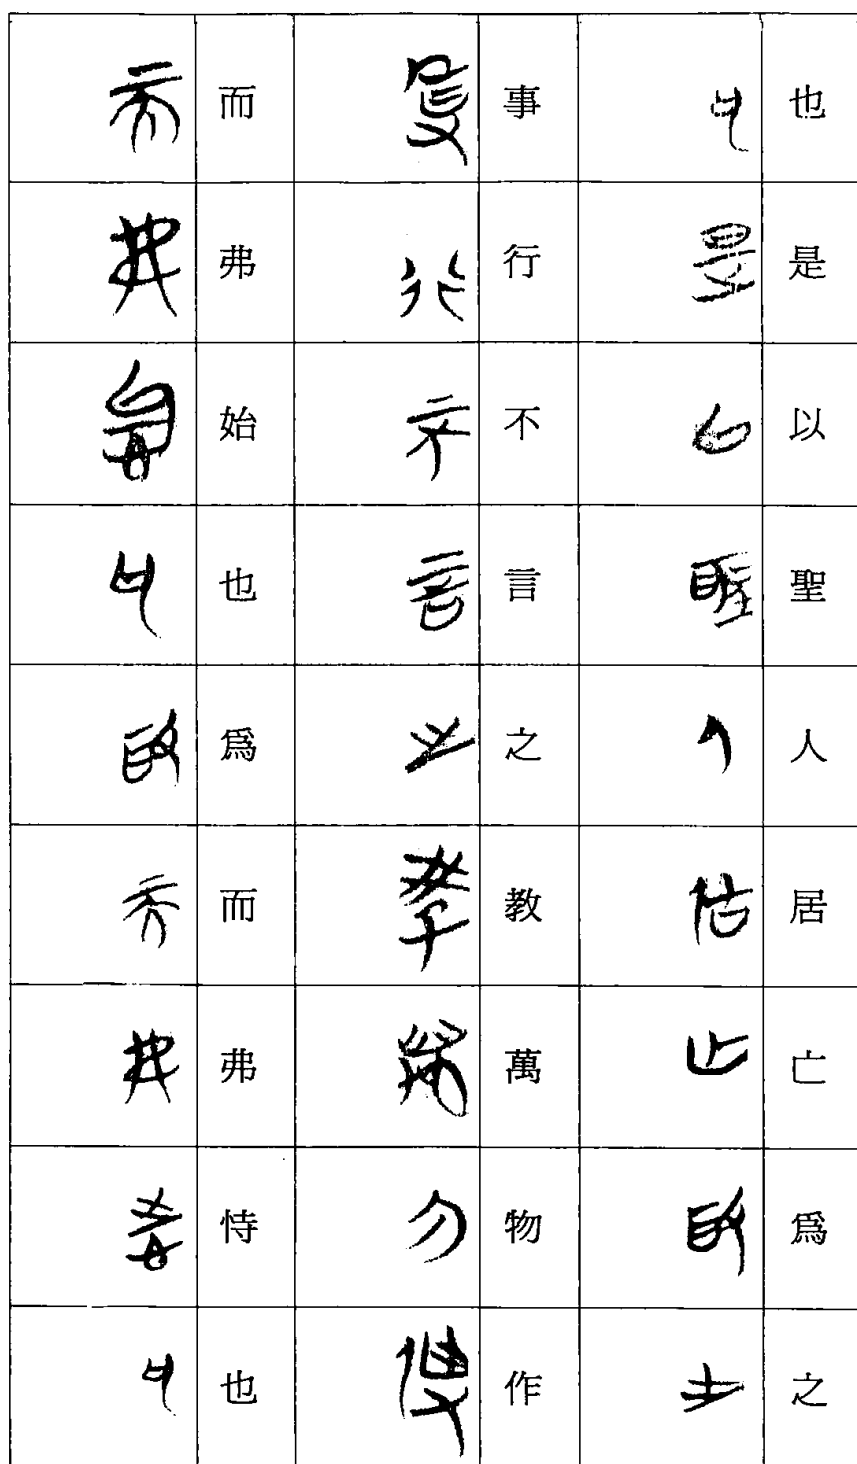 也是以聖人居亡爲之
事行不言之教萬物作
而弗始也爲而弗恃也